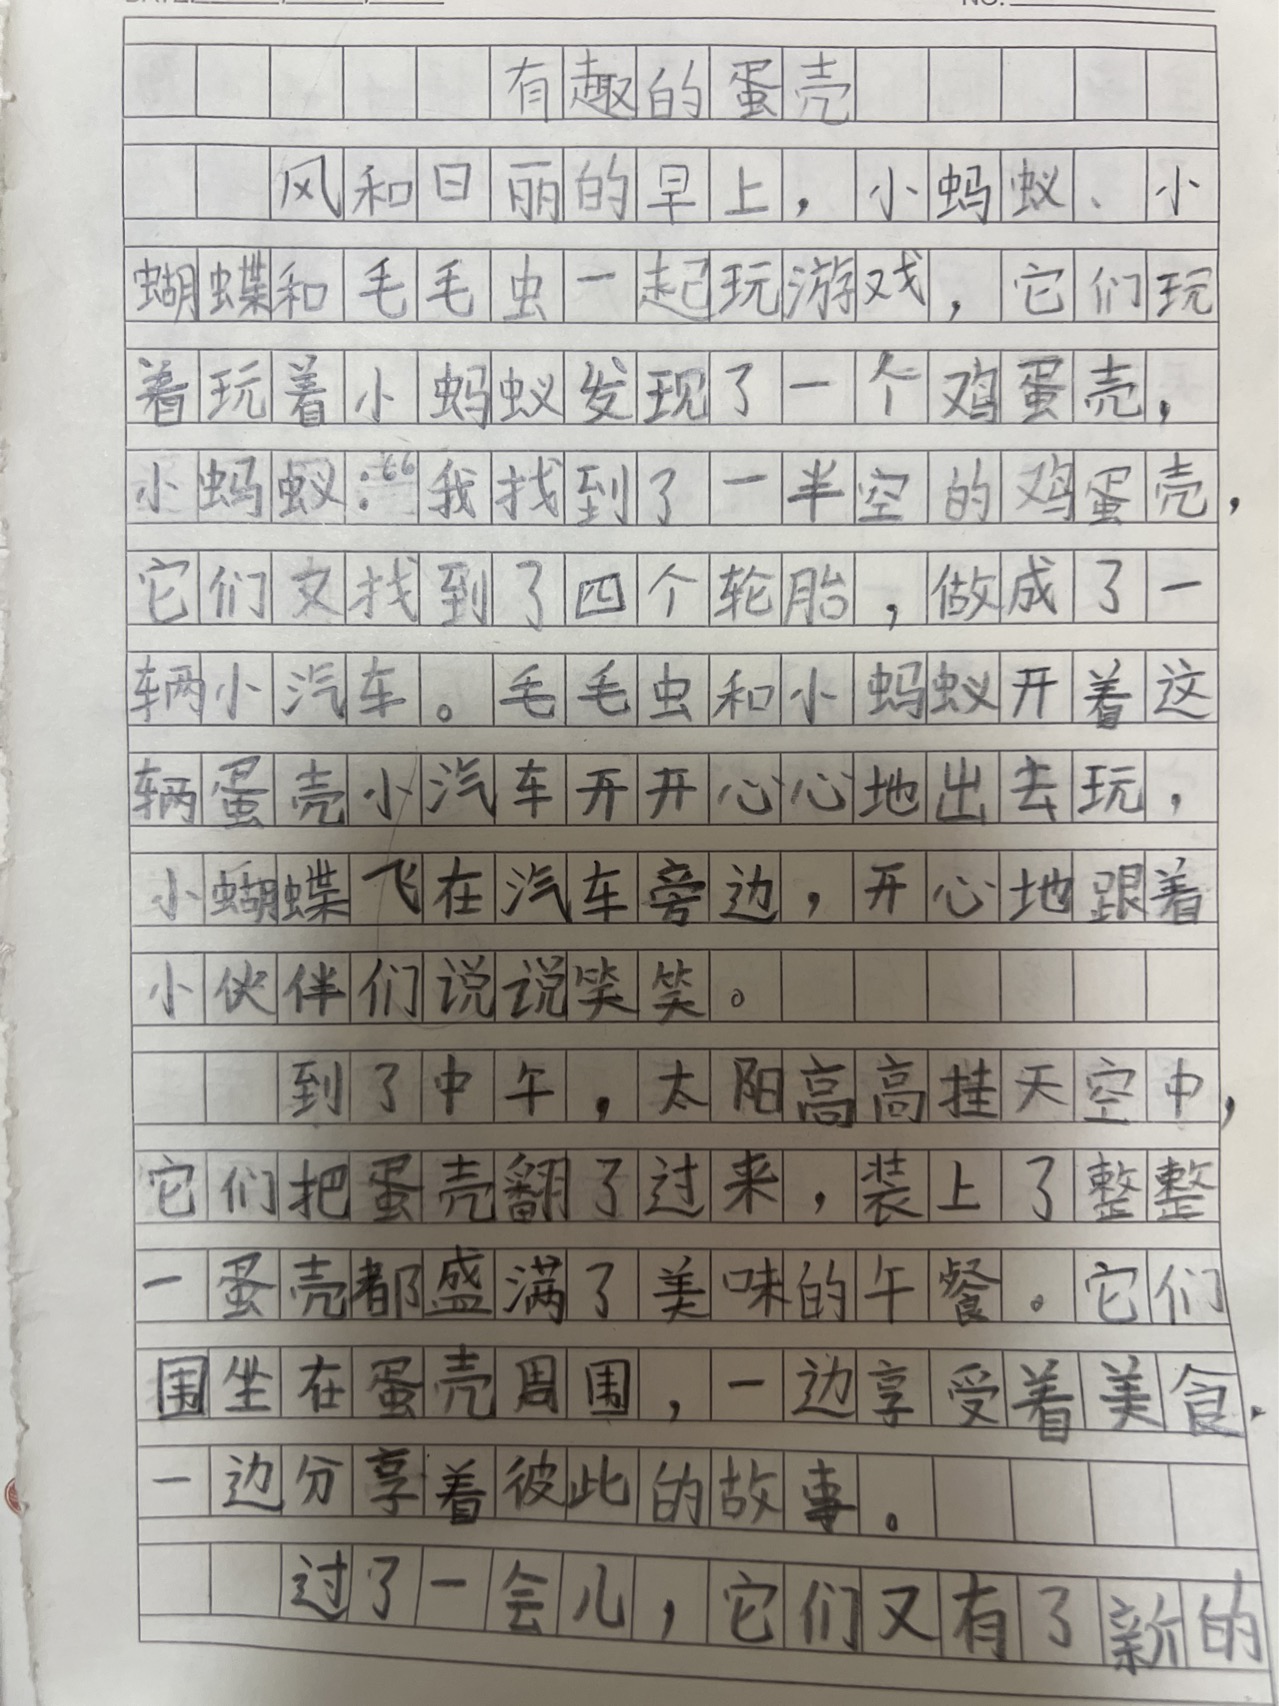 有趣的蛋壳
风和日丽的早上，小蚂蚁、小
蝴蝶和毛毛虫一起玩游戏，它们玩
着玩着小蚂蚁发现了一个鸡蛋壳，
小蚂蚁：“我找到了一半空的鸡蛋壳，
它们文找到了四个轮胎，做成了一
辆小汽车。毛毛虫和小蚂蚁开着这
辆蛋壳小汽车开开心心地出去玩，
小蝴蝶飞在汽车旁边，开心地跟着
小伙伴们说说笑笑。
到了中午，太阳高高挂天空中，
它们把蛋壳翻了过来，装上了整整
一蛋壳都盛满了美味的午餐。它们
围坐在蛋壳周围，一边享受着美食，
一边分享着彼此的故事。
过了一会儿，它们又有了新的